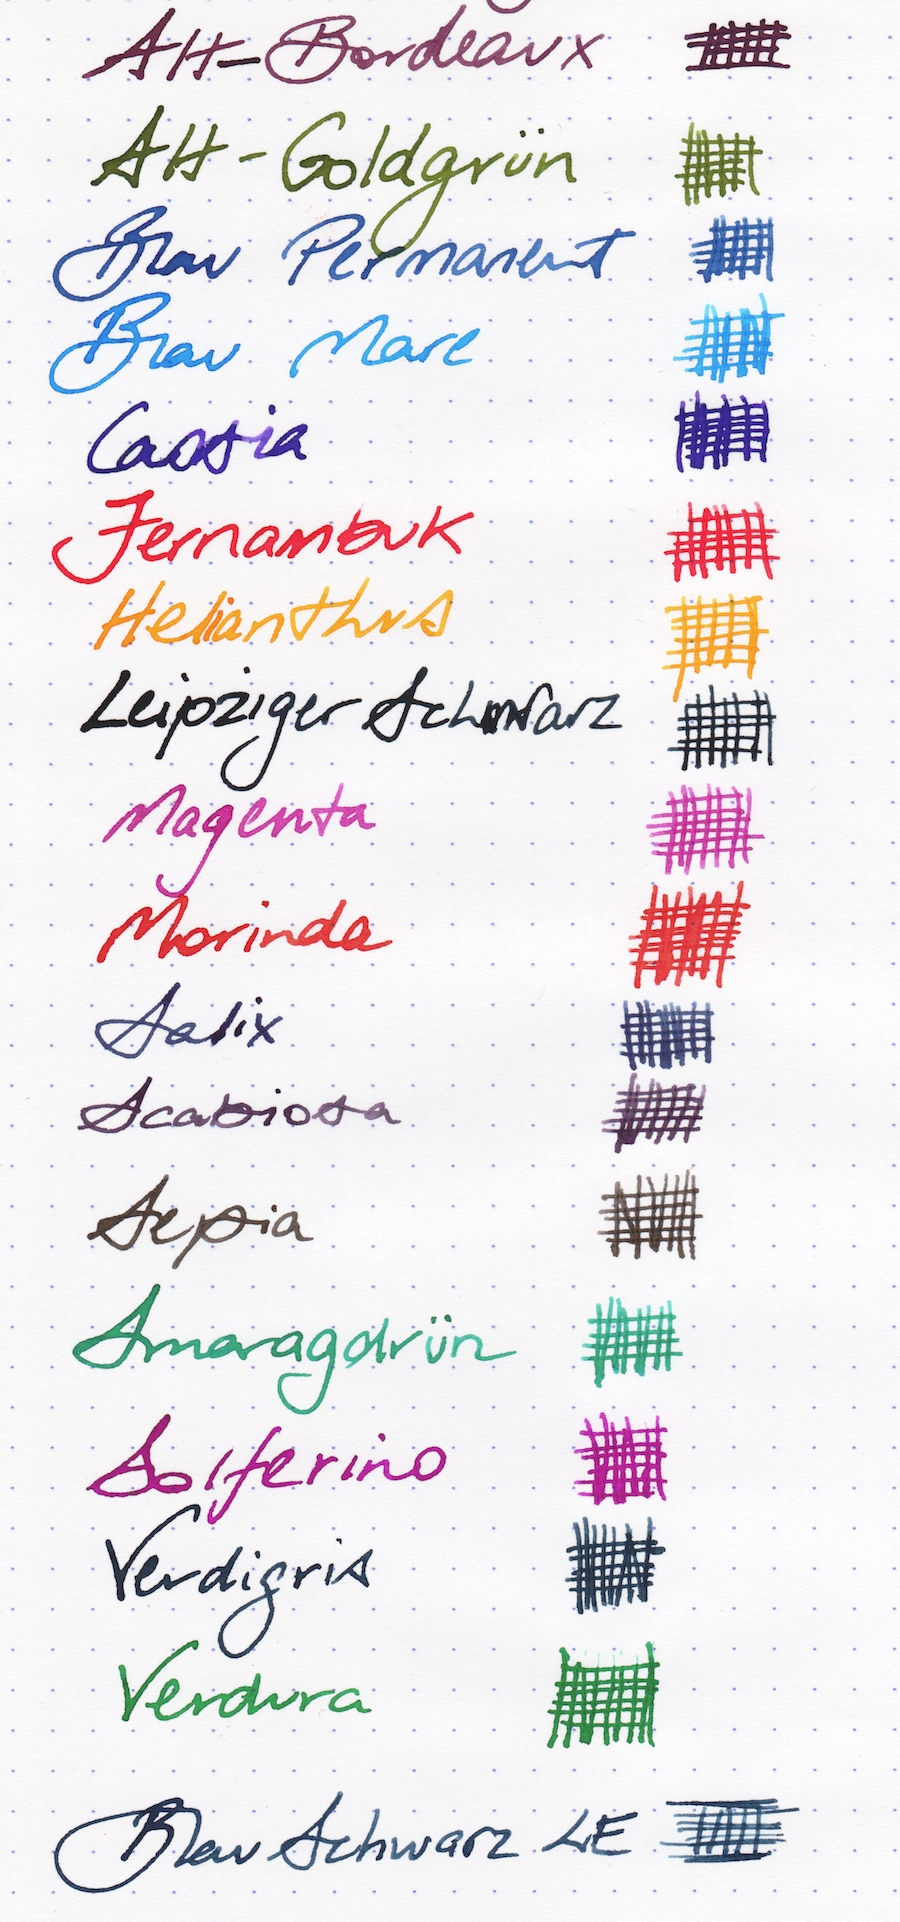 Alt-Bordeaux
Alt-Goldgrün
Blau Permanent
Blau Mare
Cassia
Fernambuk
Helianthus
Leipziger Schwarz
Magenta
Morinda
Salix
Scabiosa
Sepia
Smaragdrün
Solferino
Verdigris
Verdura
Blau Schwarz LE